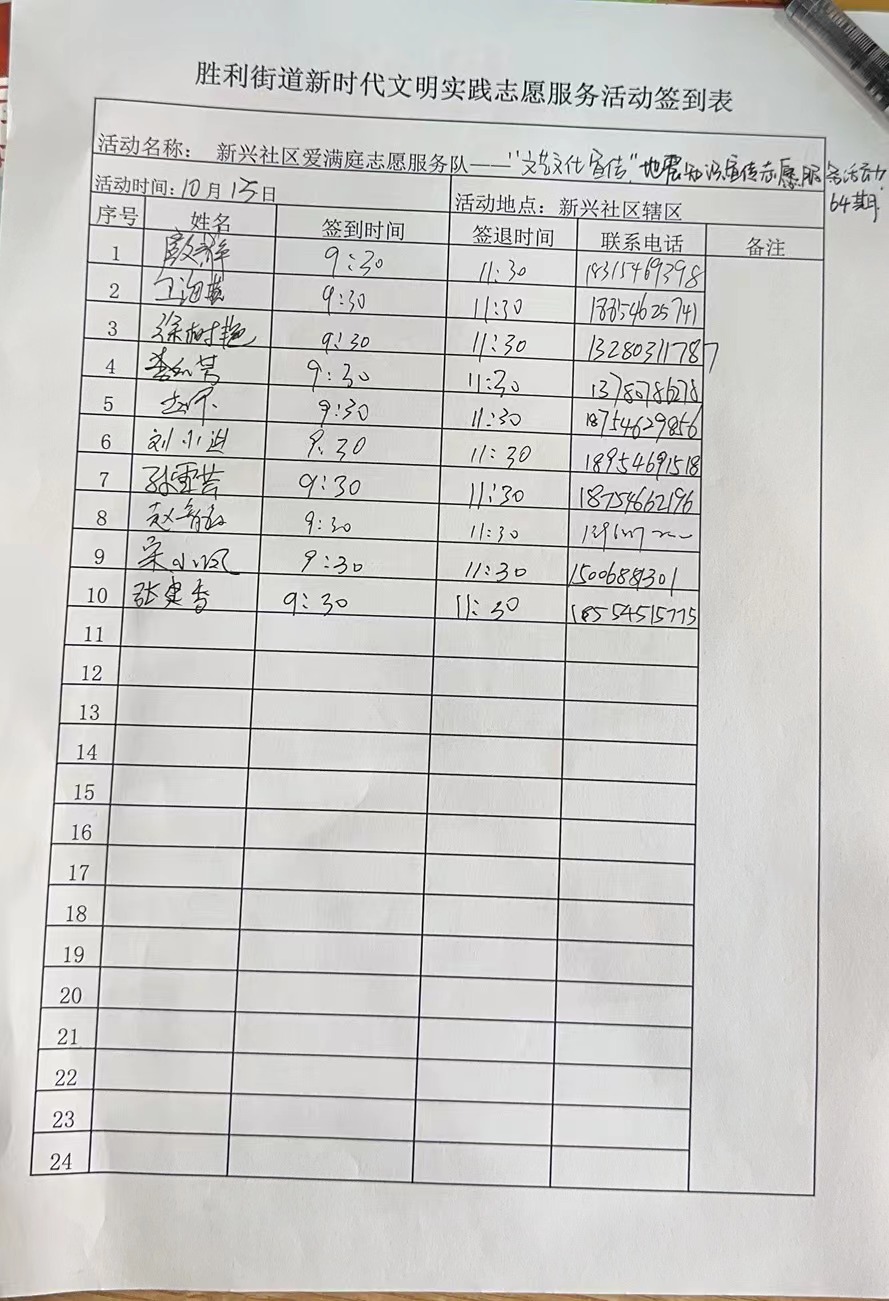 胜利街道新时代文明实践志愿服务活动签到表
活动名称： 新兴社区爱满庭志愿服务队——"文艺文化宣传"地震知识宣传志愿服务活动64期
活动时间：10月15日 活动地点：新兴社区辖区
序号 姓名 签到时间 签退时间 联系电话 备注
1 9:30 11:30 18315469398
2 9:30 11:30 18854625741
3 徐树艳 9:30 11:30 13280311787
4 9:30 11:30 13780786278
5 9:30 11:30 18754629856
6 刘小迪 9.30 11:30 18954691518
7 孙雪芸 9:30 11:30 18754662196
8 9:30 11:30
9 宋小凤 9:30 11:30
10 张建香 9:30 11:30 18554515775
11
12
13
14
15
16
17
18
19
20
21
22
23
24